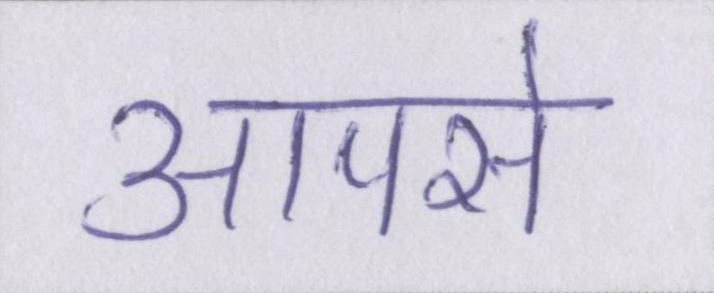 आपसे